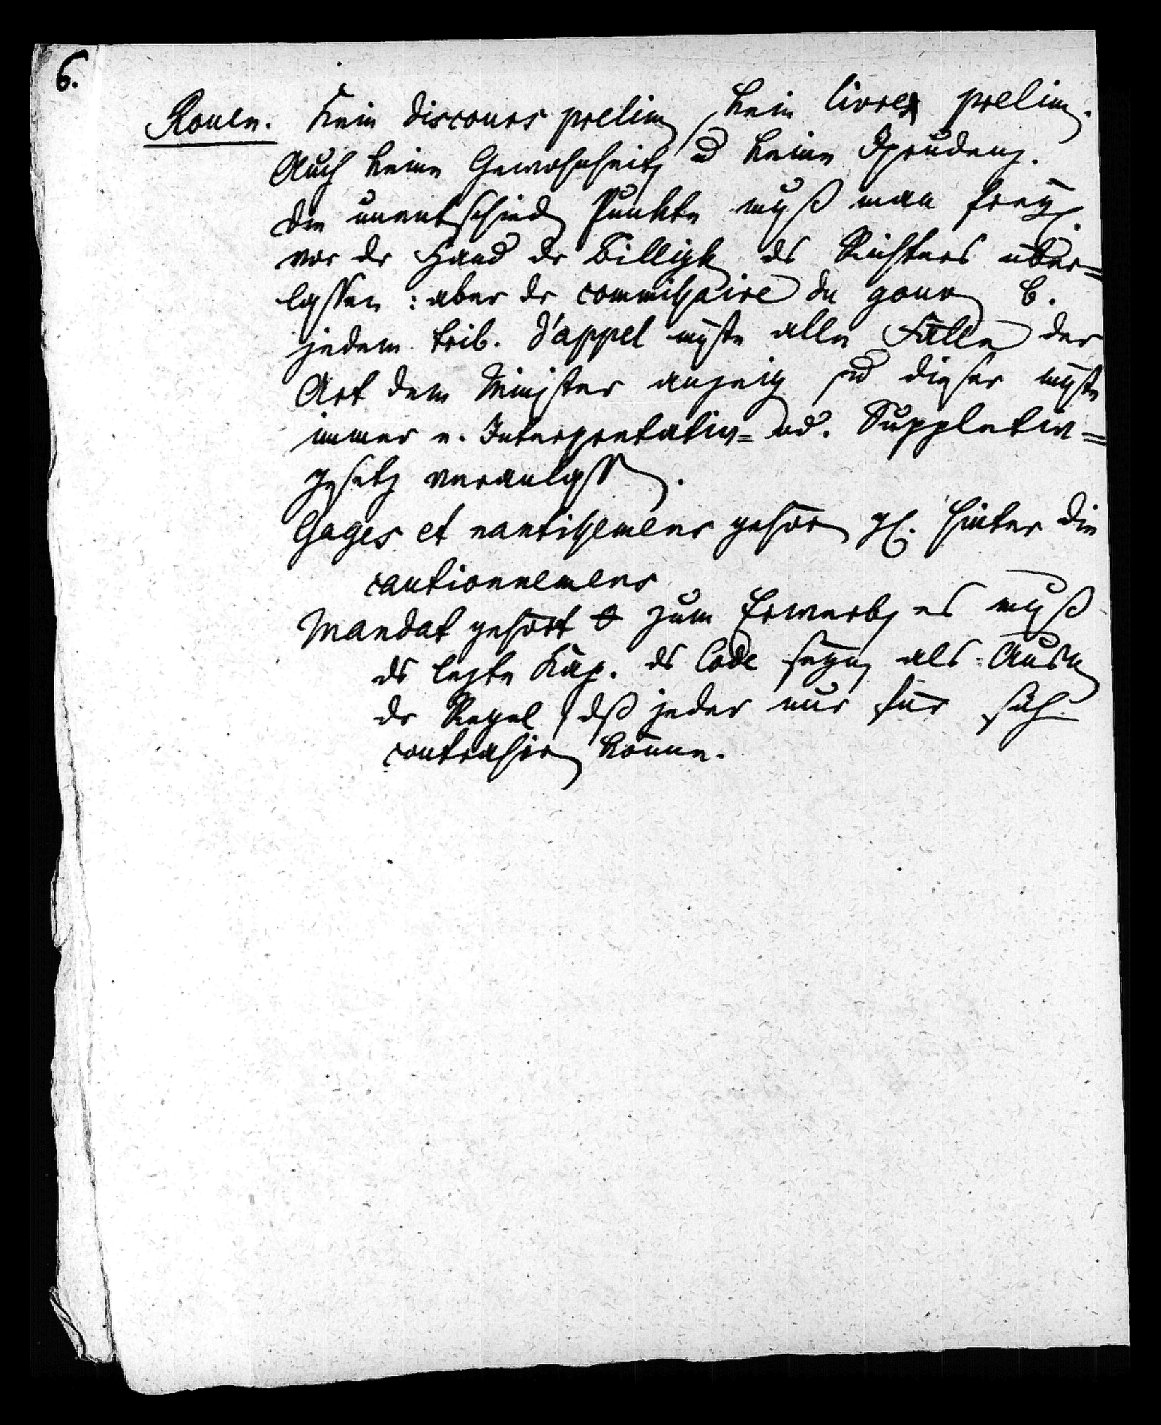 6.
Rouen. Kein discours prelim, kein livre prelim.
Auch keine Gewohnheit, u keine Jprudenz.
Die unentschied. Punkte muß man frey.
vor der Hand der Billigk. des Richters über=
lassen: aber der commissaire du gouv. b.
jedem trib. d'appel müßte alle Fälle der
Art dem Minister anzeig. u dieser müßte
immer e. Interpretativ= od. Suppletiv=
gesetz veranlass.
Gages et nantissemens gehör. gl. hinter die
cautionnemens
Mandat gehört zum Erwerb, es muß
ds lezte Kap. ds Code seyn, als Ausn.
dr Regel, dß jeder nur für sich
contrahir. könne.